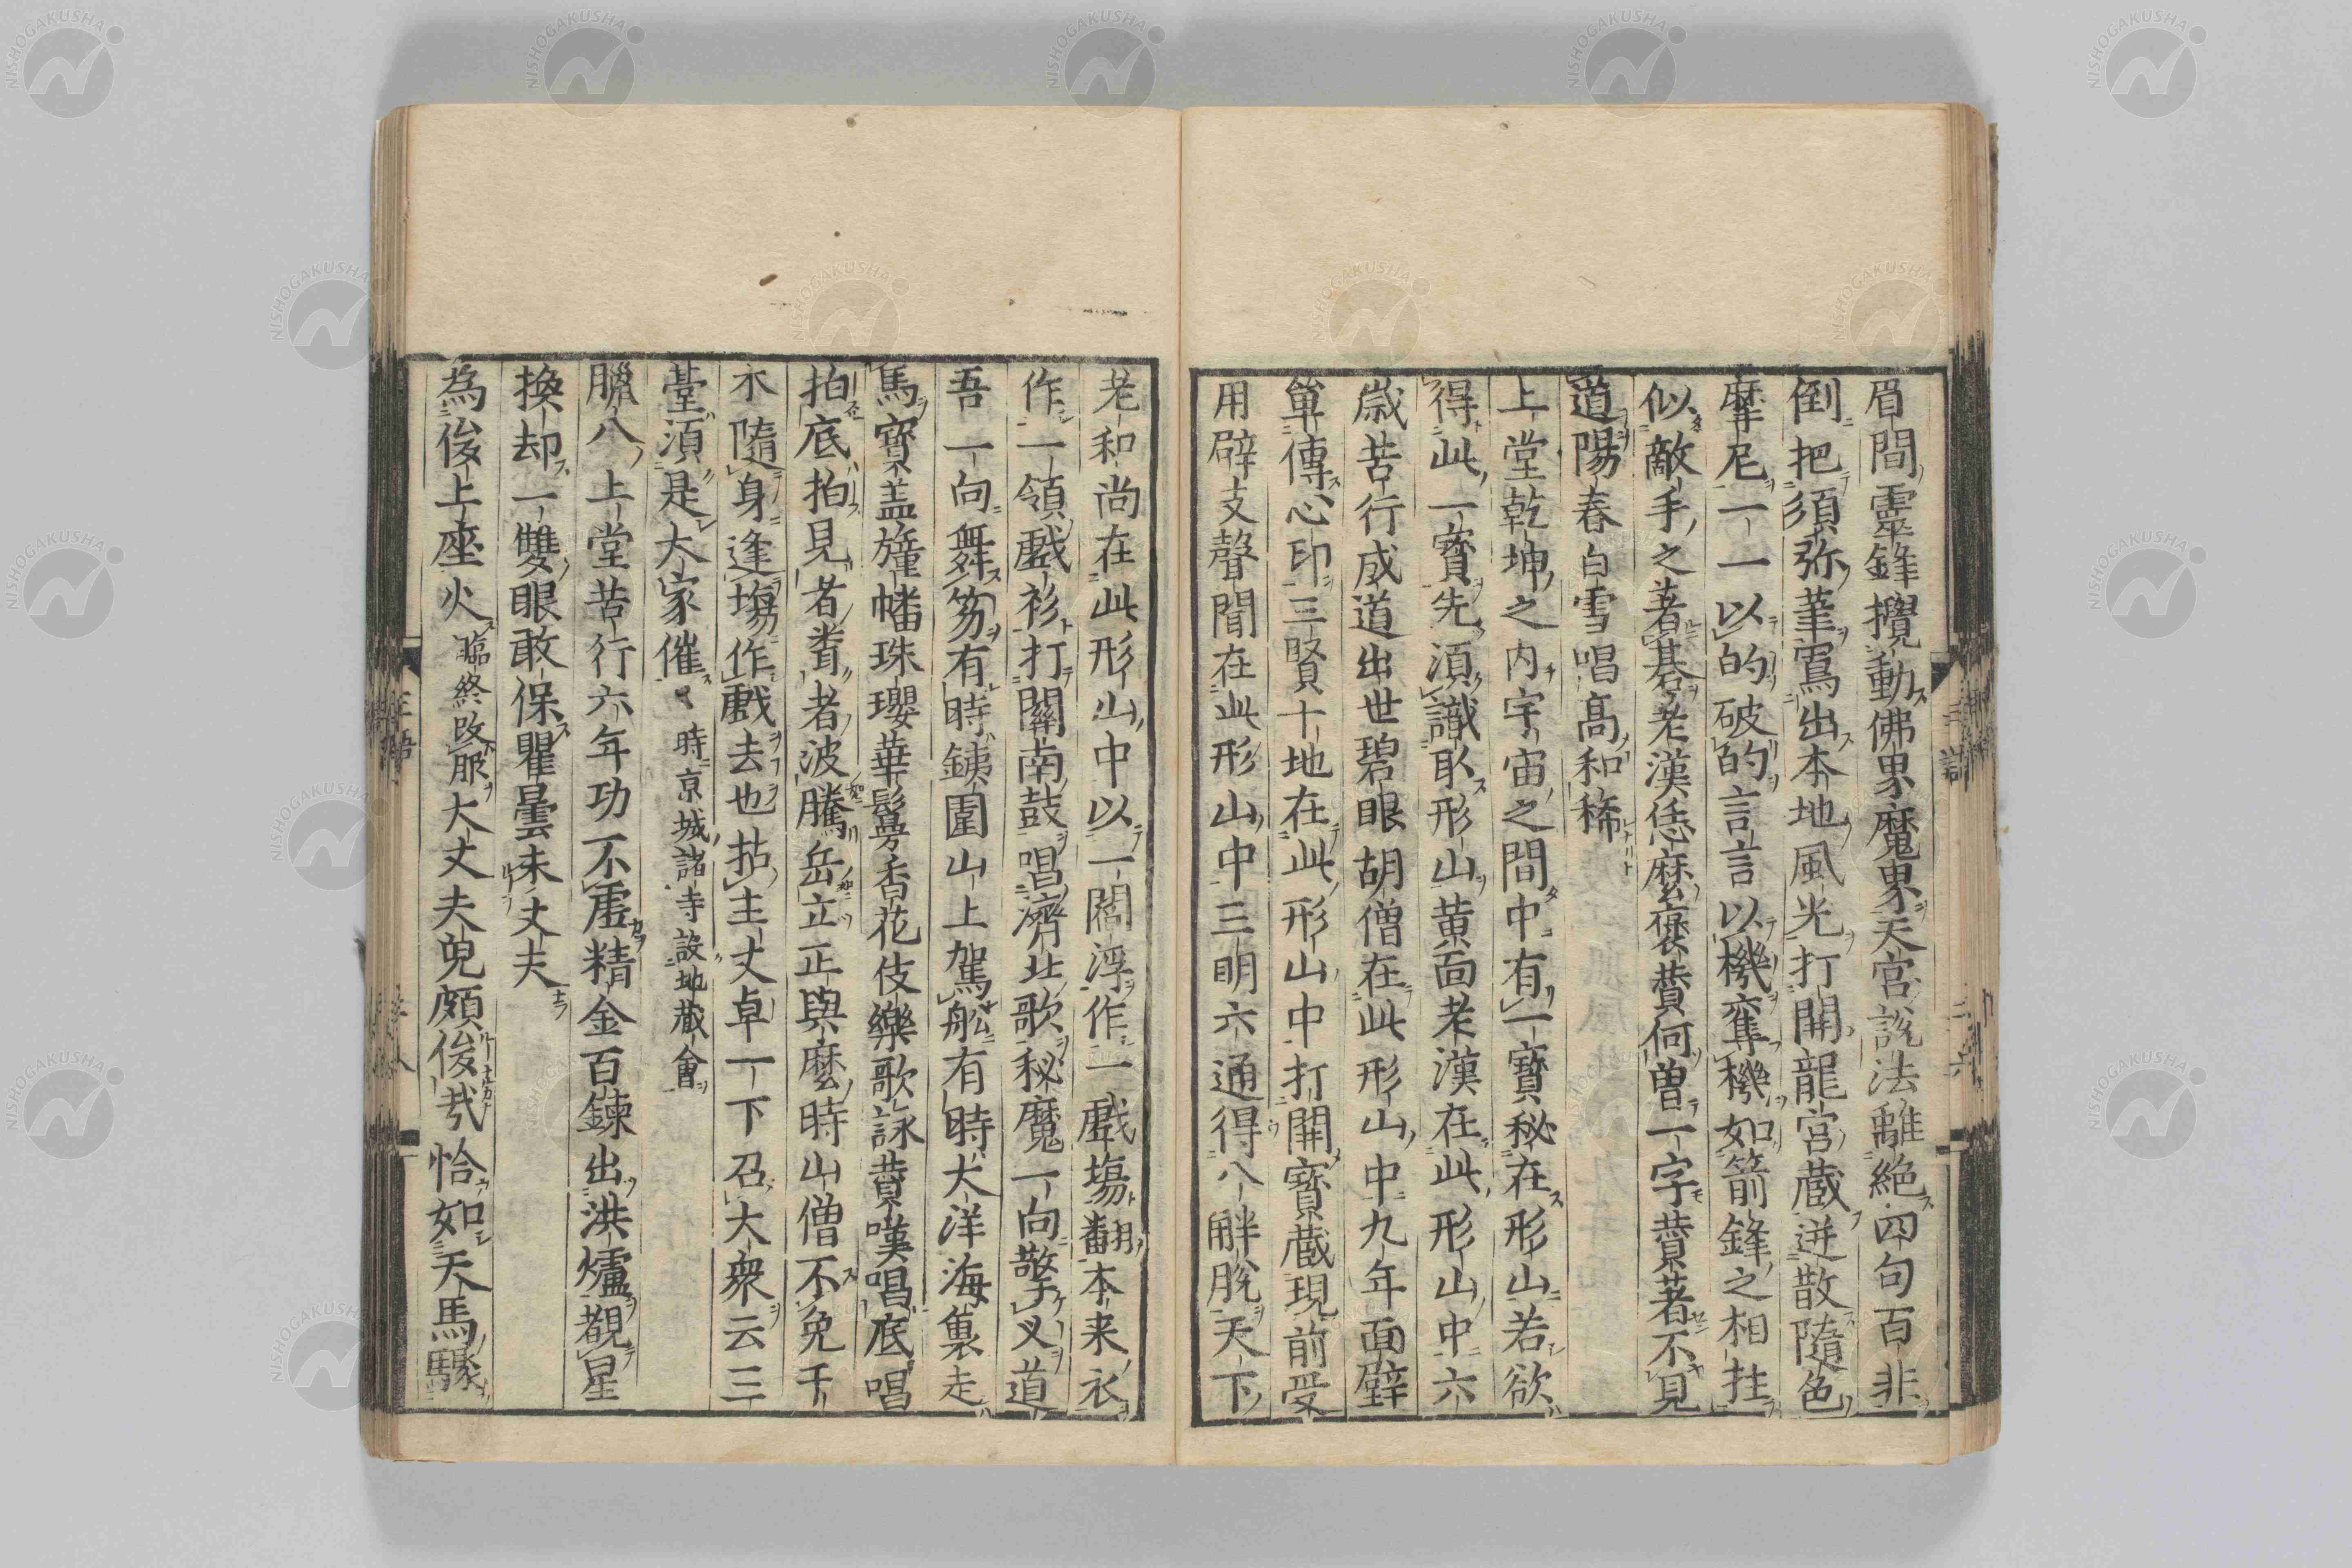 眉間靈鋒攪動佛界魔界天宮說法離絕四句百非
倒把須弥筆寫出本地風光打開龍宮蔵迸散隨色
摩尼一一以的破的言言以機奪機如箭鋒之相拄
似敵手之著碁老漢恁麼褒賛何曽一字賛著不見
道陽春白雪唱髙和稀
上堂乾坤之内宇宙之間中有一寳秘在形山若欲
得此一寳先湏識取形山黄面老漢在此形山中六
歳苦行成道出世碧眼胡僧在此形山中九年面壁
單傳心印三賢十地在此形山中打開寳蔵現前受
用辟支聲聞在此形山中三明六通得八解脫天下
老和尚在此形山中以一閻浮作一戲塲翻本来衣
作一領戲衫打關南鼓唱濟北歌秘魔一向擎叉道
吾一向舞笏有時鉄圍山上駕舩有時大洋海裏走
馬寳盖旛幢幡珠瓔華鬘香花伎樂歌詠賛嘆唱底唱
拍底拍見者者波騰岳立正與麼時山僧不免千
木隨身逢塲作戲去也拈主丈卓一下召大衆云三
臺湏是大家催 時京城諸寺設地蔵會
臘八上堂苦行六年功不虛精金百鍊出洪爐覩星
換却一雙眼敢保瞿曇未丈夫
為俊上座火 臨終改服 大丈夫兒頗俊哉恰如天馬驟
NISHOGAKUSHA